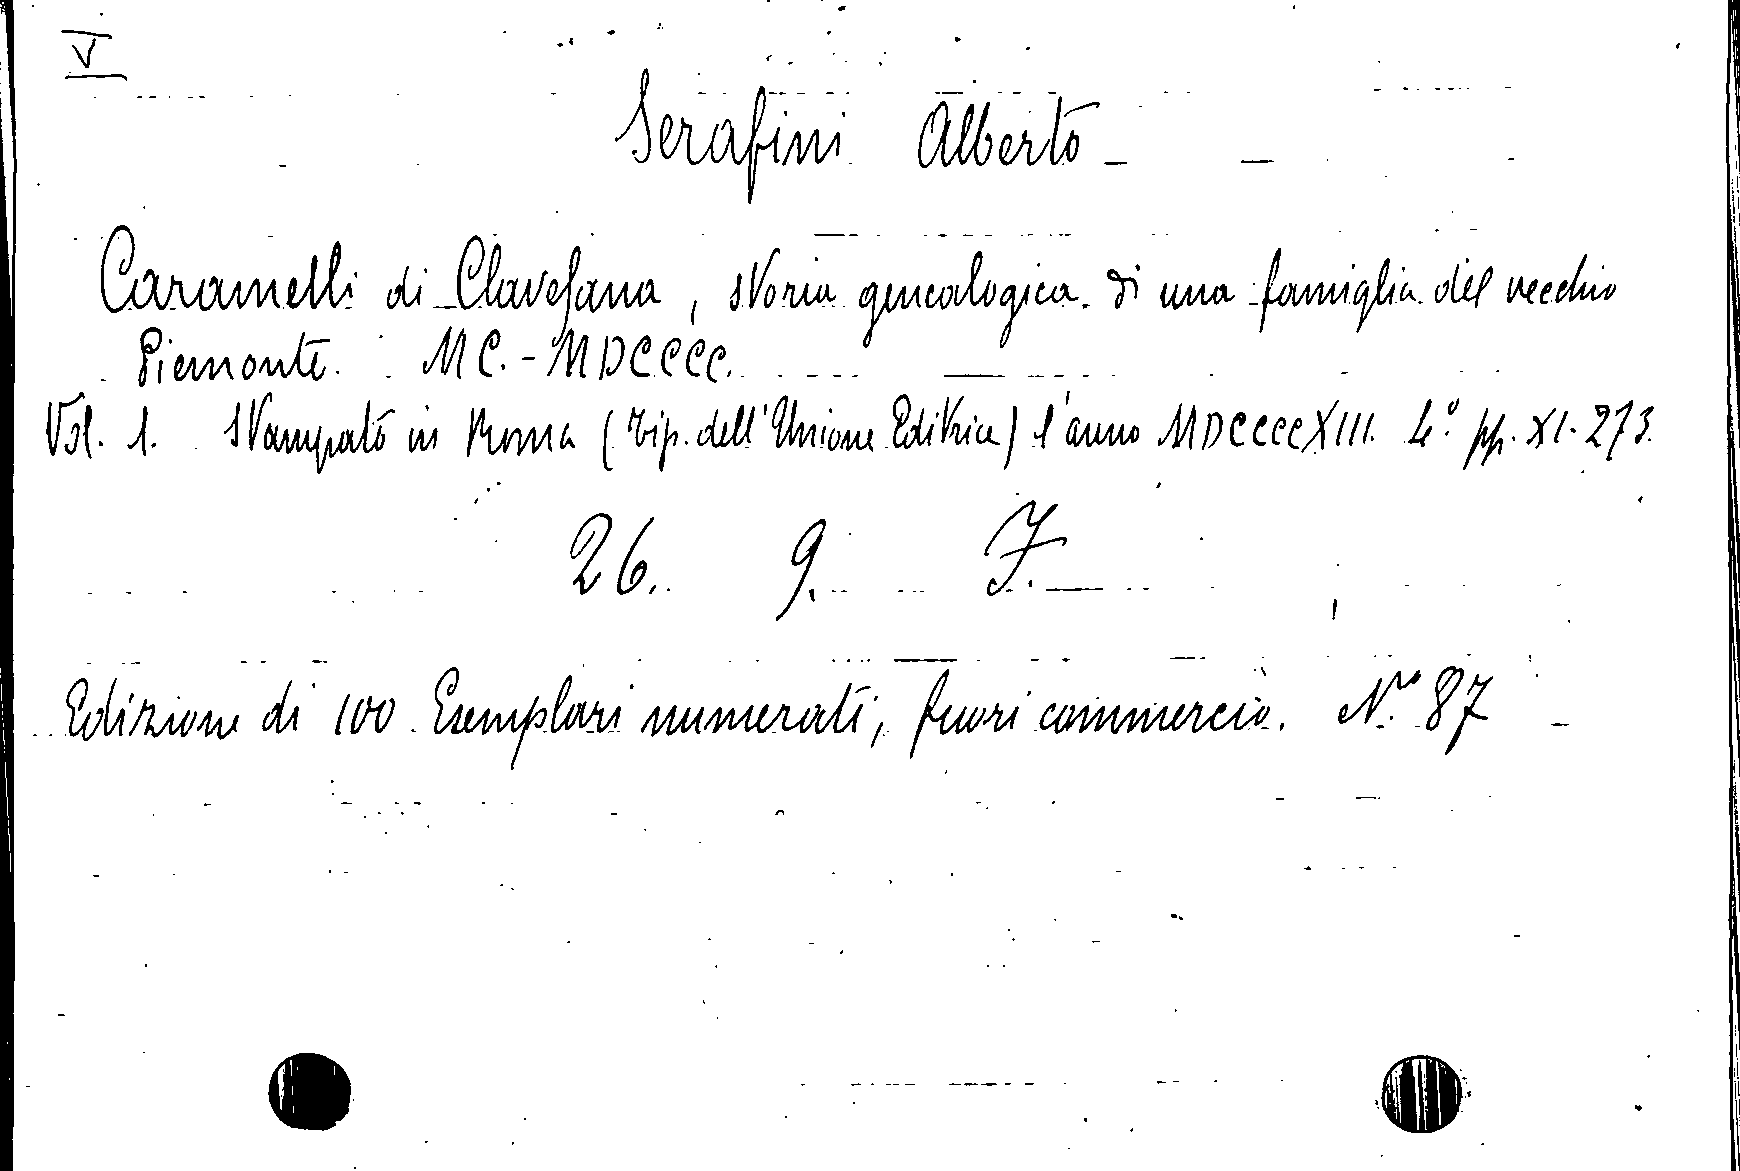 V
Serafini Alberto
Caramelli di Clavesana, storia genealogica di una famiglia del vecchio
Piemonte. MC.-MDCCCC.
Vol. 1. Stampato in Roma (Tip. dell'Unione Editrice) l'anno MDCCCCXIII. 4.° pp. XI-273.
26. 9. F.
Edizione di 100 Esemplari numerati, fuori commercio. N.° 87